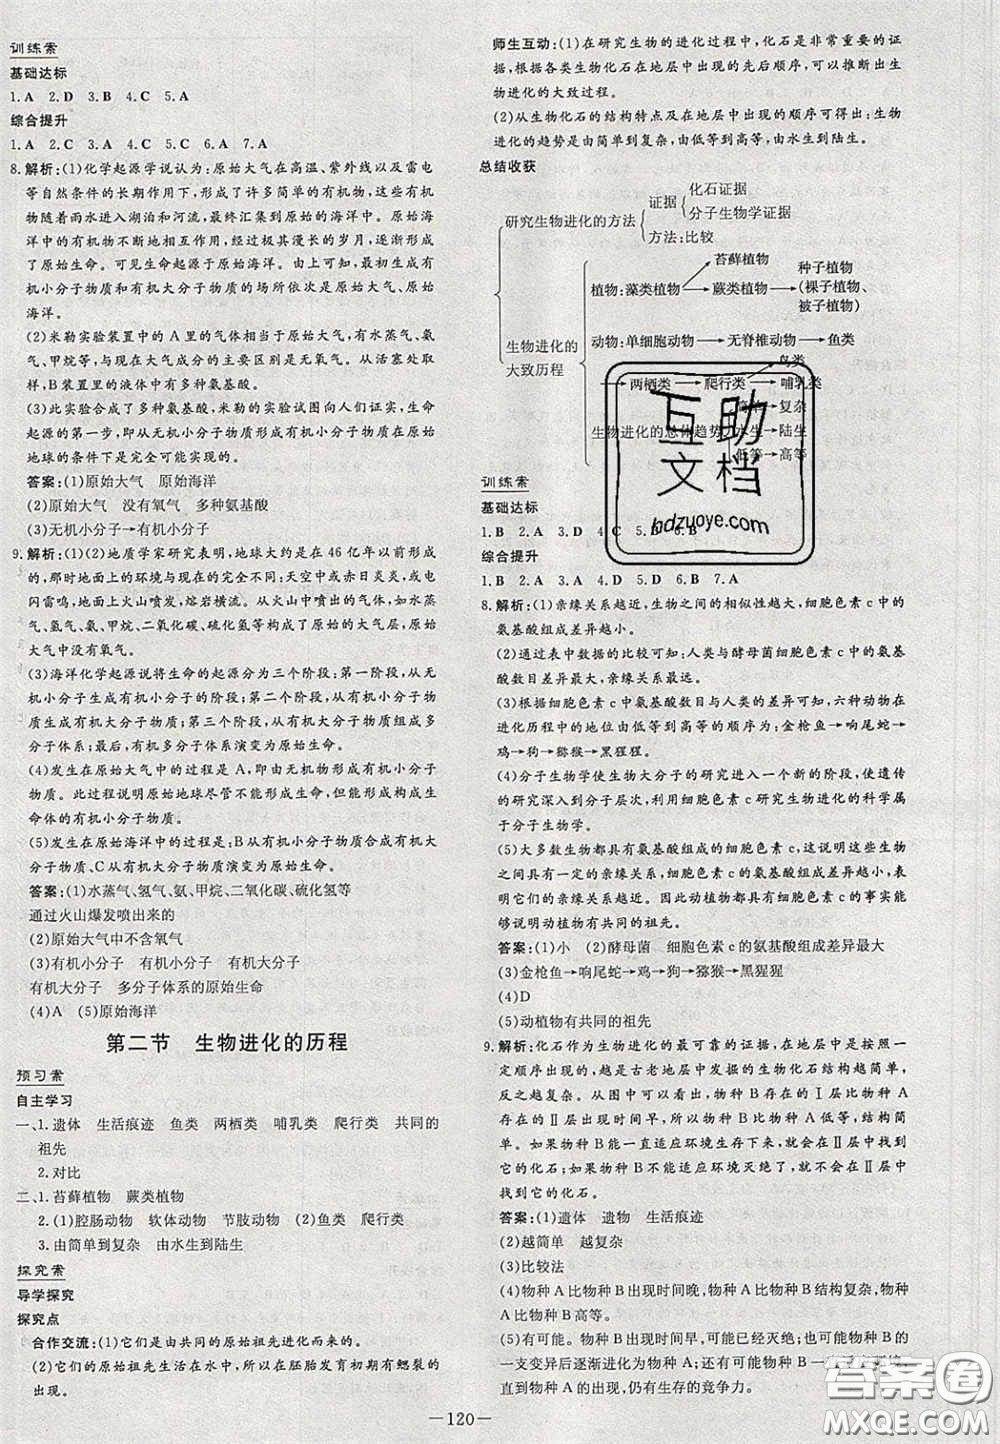 训练案
基础达标
1.A 2.D 3.B 4.C 5.A
综合提升
1.A 2.C 3.B 4.C 5.D 6.C 7.A
8.解析:(1)化学起源学说认为:原始大气在高温、紫外线以及雷电
等自然条件的长期作用下,形成了许多简单的有机物,这些有机
物随着雨水进入湖泊和河流,最终汇集到原始的海洋中。原始海
洋中的有机物不断地相互作用,经过极其漫长的岁月,逐渐形成了
原始生命。可见生命起源于原始海洋。由上可知,原始地球上形成有
机小分子物质和有机大分子物质的场所依次是原始大气、原始
海洋。
(2)米勒实验装置中的A里的气体相当于原始大气,有水蒸气、氨
气、甲烷等,与现在大气成分的主要区别是无氧气。从活塞处取
样,B装置里的液体中有多种氨基酸。
(3)此实验合成了多种氨基酸,米勒的实验试图向人们证实,生命
起源的第一步,即从无机小分子物质形成有机小分子物质在原始
地球的条件下是完全可能实现的。
答案:(1)原始大气 原始海洋
(2)原始大气 没有氧气 多种氨基酸
(3)无机小分子→有机小分子
9.解析:(1)(2)地质学家研究表明,地球大约是在46亿年以前形成
的,那时地面上的环境与现在完全不同:天空中或赤日炎炎,或电
闪雷鸣,地面上火山喷发,熔岩横流。从火山中喷出的气体,如水蒸
气、氢气、氨、甲烷、二氧化碳、硫化氢等构成了原始大气层,原始
大气中没有氧气。
(3)海洋化学起源说将生命的起源分为三个阶段:第一个阶段,从无
机小分子生成有机小分子的阶段;第二个阶段,从有机小分子物
质生成有机大分子物质;第三个阶段,从有机大分子物质组成多
分子体系;最后,有机多分子体系演变为原始生命。
(4)发生在原始大气中的过程是A,即由无机小分子物质生成有机小分子
物质。这说明原始地球尽管不能形成生命,但能形成构成生
命体的有机小分子物质。
(5)发生在原始海洋中的过程是:B从有机小分子物质合成有机大
分子物质、C从有机大分子物质演变为原始生命。
答案:(1)水蒸气、氢气、氨、甲烷、二氧化碳、硫化氢等
通过火山爆发喷出来的
(2)原始大气中不含氧气
(3)有机小分子 有机小分子 有机大分子
有机大分子 多分子体系的原始生命
(4)A (5)原始海洋
第二节 生物进化的历程
预习案
自主学习
一、1.遗体 生活痕迹 鱼类 两栖类 哺乳类 爬行类 共同的
祖先
2.对比
二、1.苔藓植物 蕨类植物
2.(1)腔肠动物 软体动物 节肢动物 (2)鱼类 爬行类
3.由简单到复杂 由水生到陆生
探究案
导学探究
探究点
合作交流:(1)它们是由共同的原始祖先进化而来的。
(2)它们的原始祖先生活在水中,所以在胚胎发育初期有鳃裂的
出现。
师生互动:(1)在研究生物的进化过程中,化石是非常重要的证
据,根据各类生物化石在地层中出现的先后顺序,可以推断出生
物进化的大致过程。
(2)从生物化石的结构特点及在地层中出现的顺序可得出:生物
进化的趋势是由简单到复杂,由低等到高等,由水生到陆生。
总结收获
研究生物进化的方法 证据 化石证据
分子生物学证据
方法:比较
生物进化的
大致历程
植物:藻类植物 苔藓植物
蕨类植物 种子植物
(裸子植物、
被子植物)
动物:单细胞动物→无脊椎动物→鱼类
→两栖类→爬行类 鸟类
哺乳类
生物进化的总体趋势 →复杂
水生→陆生
低等→高等
训练案
基础达标
1.B 2.A 3.D 4.C 5.D 6.B
综合提升
1.B 2.A 3.A 4.D 5.D 6.B 7.A
8.解析:(1)亲缘关系越近,生物之间的相似性越大,细胞色素c中的
氨基酸组成差异越小。
(2)通过表中数据的比较可知:人类与酵母菌细胞色素c中的氨基
酸数目差异最大,亲缘关系最远。
(3)根据细胞色素c中氨基酸数目与人类的差异可知,六种动物在
进化历程中的地位由低等到高等的顺序为:金枪鱼→响尾蛇→
鸡→狗→猕猴→黑猩猩。
(4)分子生物学使生物大分子的研究进入一个新的阶段,使遗传
的研究深入到分子层次,利用细胞色素c研究生物进化的科学属
于分子生物学。
(5)大多数生物都具有氨基酸组成的细胞色素c,说明这些生物之
间具有一定的亲缘关系,细胞色素c的氨基酸组成差异越小,说明
它们的亲缘关系越近。因此动植物都具有细胞色素c的事实能
够说明动植物有共同的祖先。
答案:(1)小 (2)酵母菌 细胞色素c的氨基酸组成差异最大
(3)金枪鱼→响尾蛇→鸡→狗→猕猴→黑猩猩
(4)D
(5)动植物有共同的祖先
9.解析:化石作为生物进化的最可靠的证据,在地层中是按照一
定顺序出现的,越是古老地层中发掘的生物化石结构越简单,
反之越复杂。从图中可以看出,物种B存在的Ⅰ层比物种A
存在的Ⅱ层出现时间早,所以物种B比物种A低等,结构简
单。如果物种B能一直适应环境生存下来,就会在Ⅱ层中找到
它的化石;如果物种B不能适应环境灭绝了,就不能在Ⅱ层中
找到它的化石。
答案:(1)遗体 遗物 生活痕迹
(2)越简单 越复杂
(3)比较法
(4)物种A比物种B出现时间晚,物种A比物种B结构复杂,物种
A比物种B高等。
(5)有可能。物种B出现时间早,可能已经灭绝;也可能物种B的
一支变异后逐渐进化为物种A;还有可能物种B一直适应环境,
直到物种A的出现,仍有生存的竞争力。
—120—
互助
文档
bdzuoye.com
答案圈
MXQE.COM